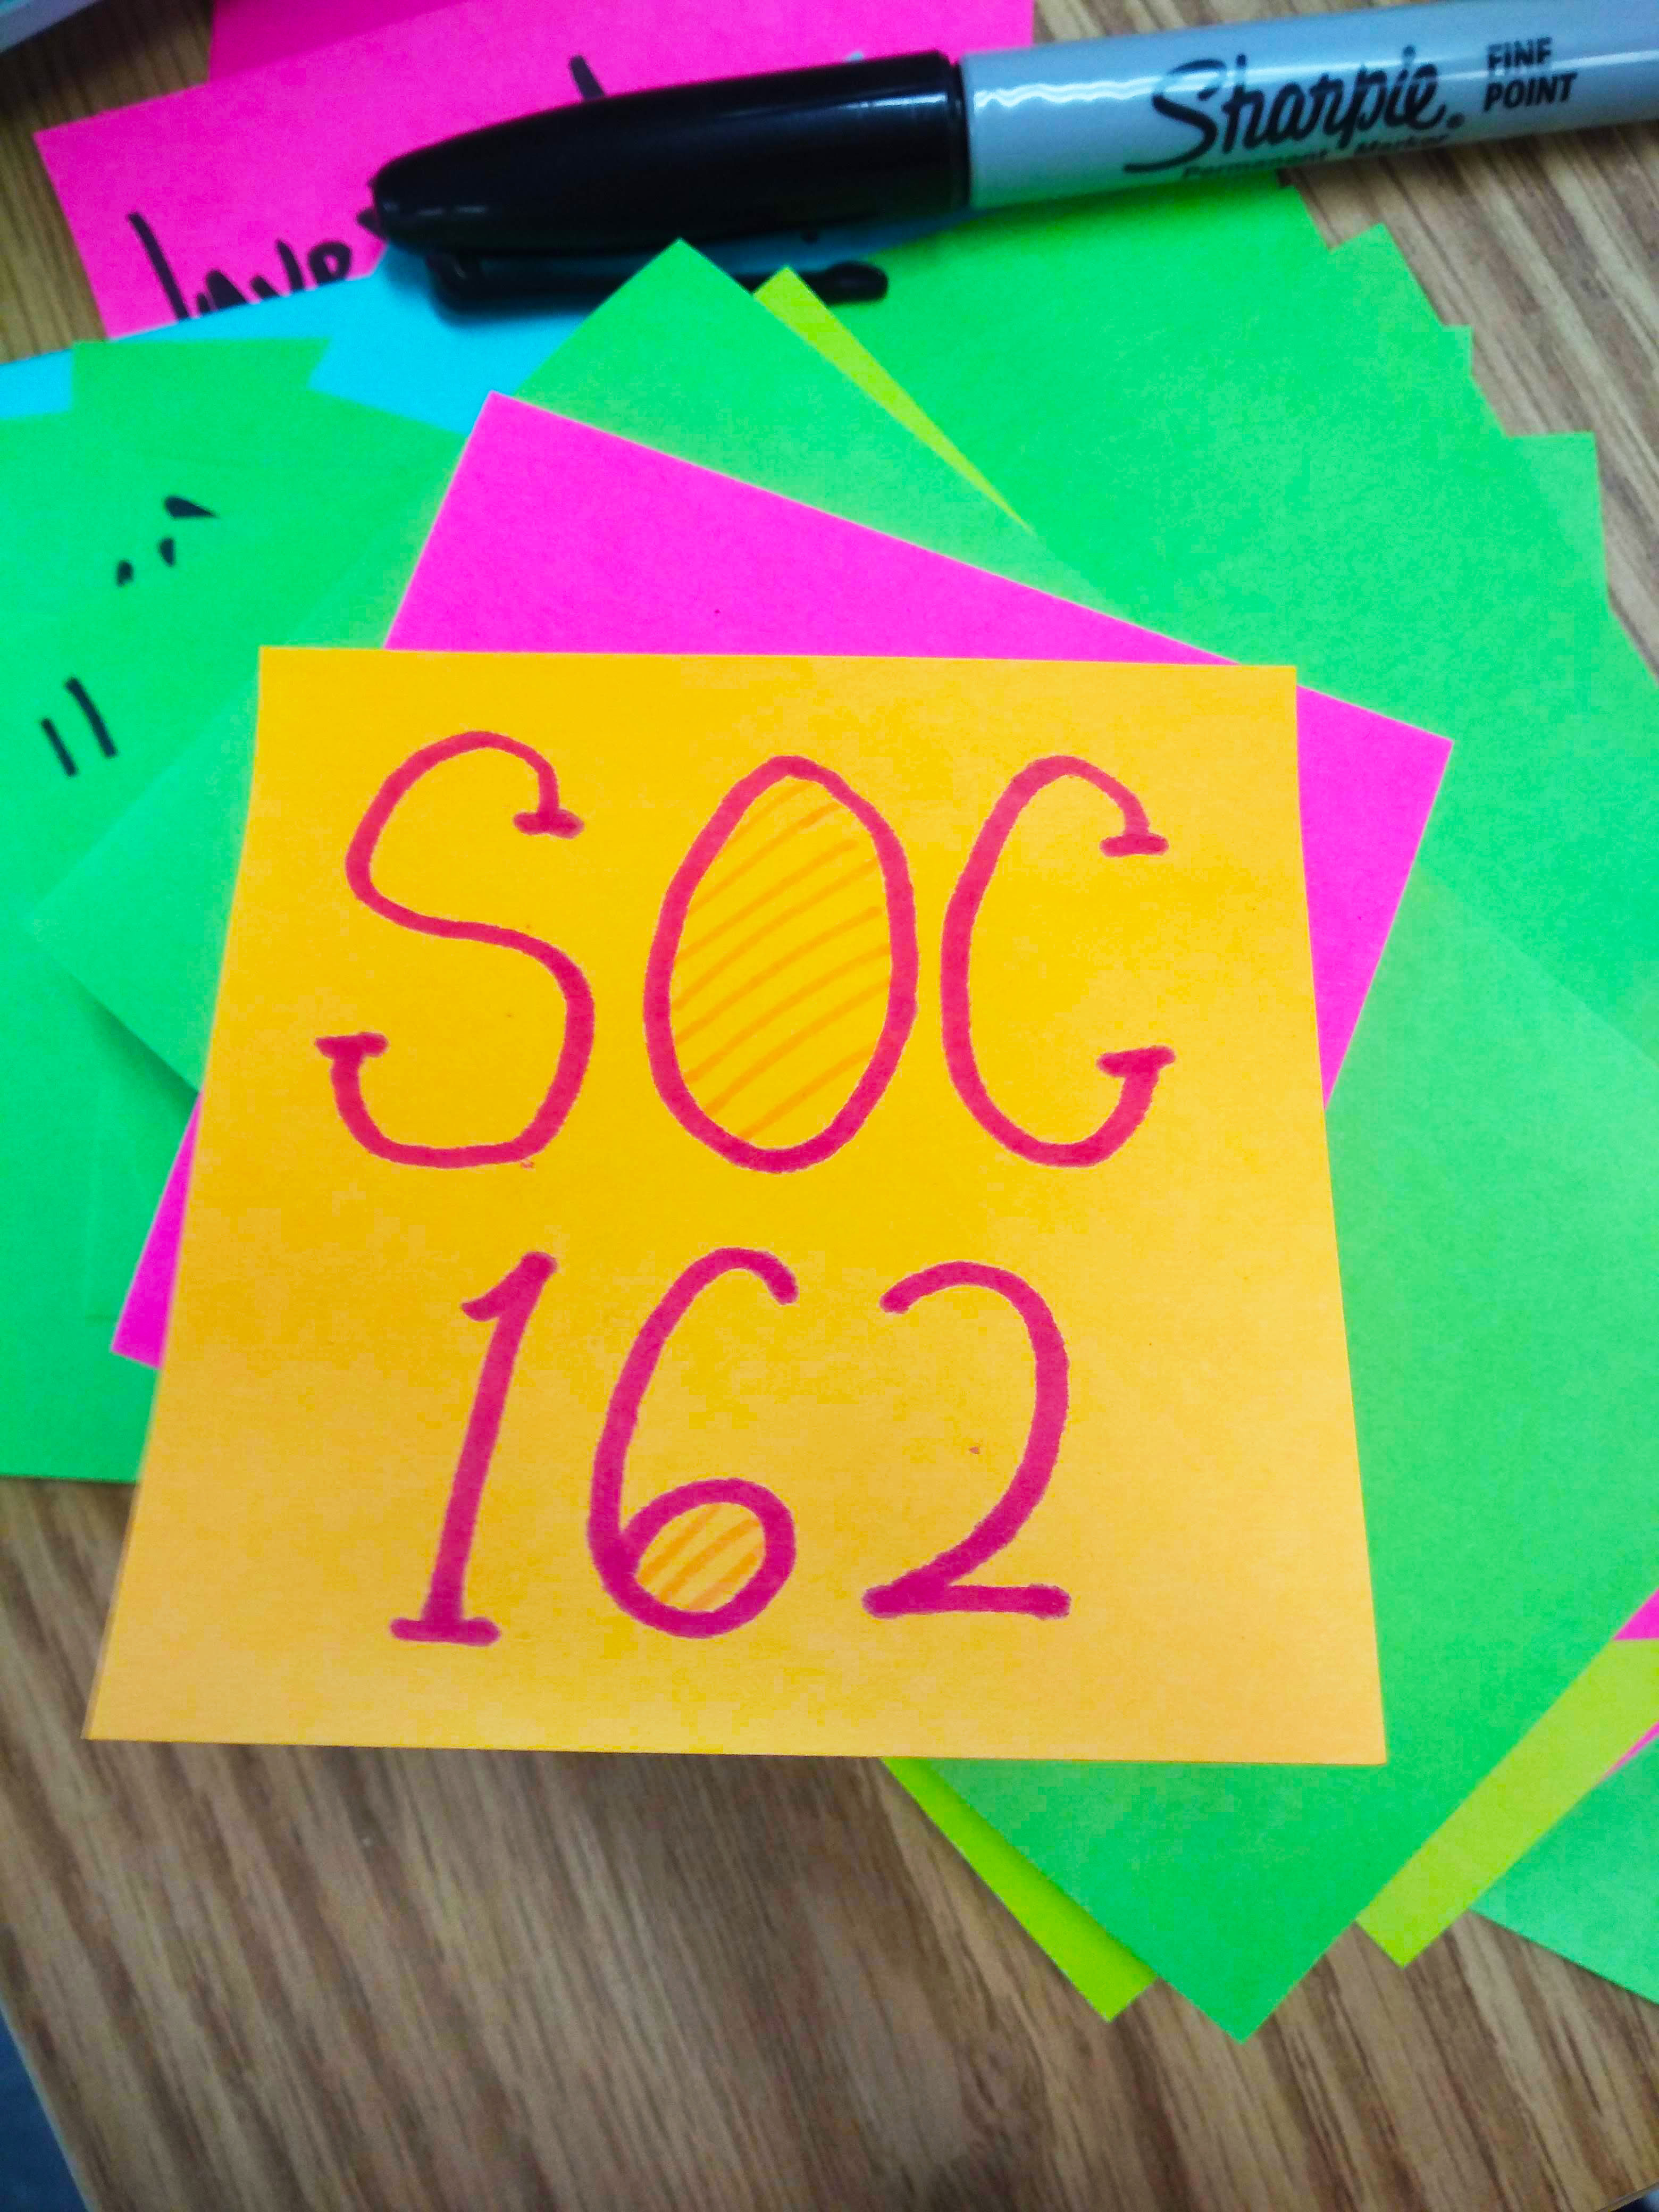 Sharpie. FINE
POINT
Permanent Marker
SOC
162